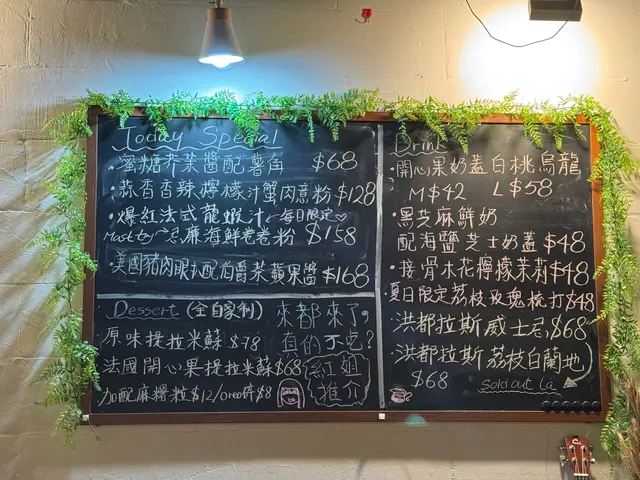 Today Special
·蜜糖芥茉醬配薯角 $68
香辣檸檬汁蜆肉意粉 $128
·爆紅法式龍蝦汁 每日限定
Must try 芝麻海鮮卷卷粉 $158
美國豬肉眼扒配伯爵茶蘋果醬 $168
Dessert (全自家制)
原味提拉米蘇 $78
法國開心果提拉米蘇 $68
加配麻糬粒 $12/oreo碎 $8
來都來了,
真的不吃?
紅姐
推介
Drink
開心果奶蓋白桃烏龍
M $42 L $58
·黑芝麻鮮奶
配海鹽芝士奶蓋 $48
·接骨木花檸檬茉莉 $48
夏日限定荔枝玫瑰梳打 $48
·洪都拉斯威士忌 $68
·洪都拉斯荔枝白蘭地
$68
Sold out La